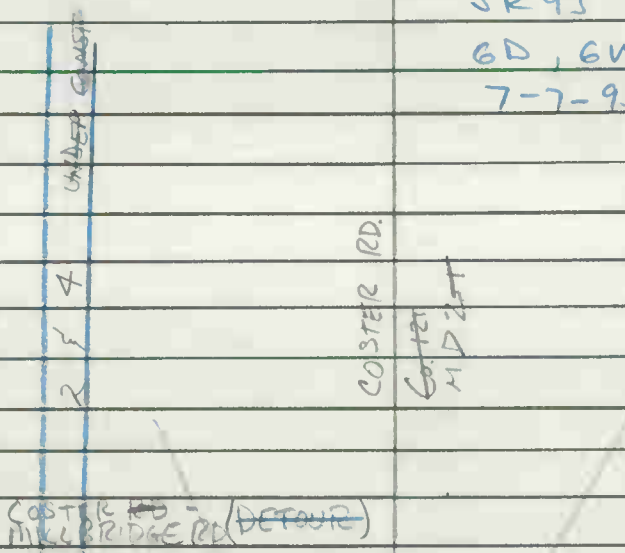 SR 93
6D, 6V
7-7-9
UNDER CONST
2 & 4
COSTER RD.
Co. 121
MD 251
COSTER RD -
MILL BRIDGE RD (DETOUR)